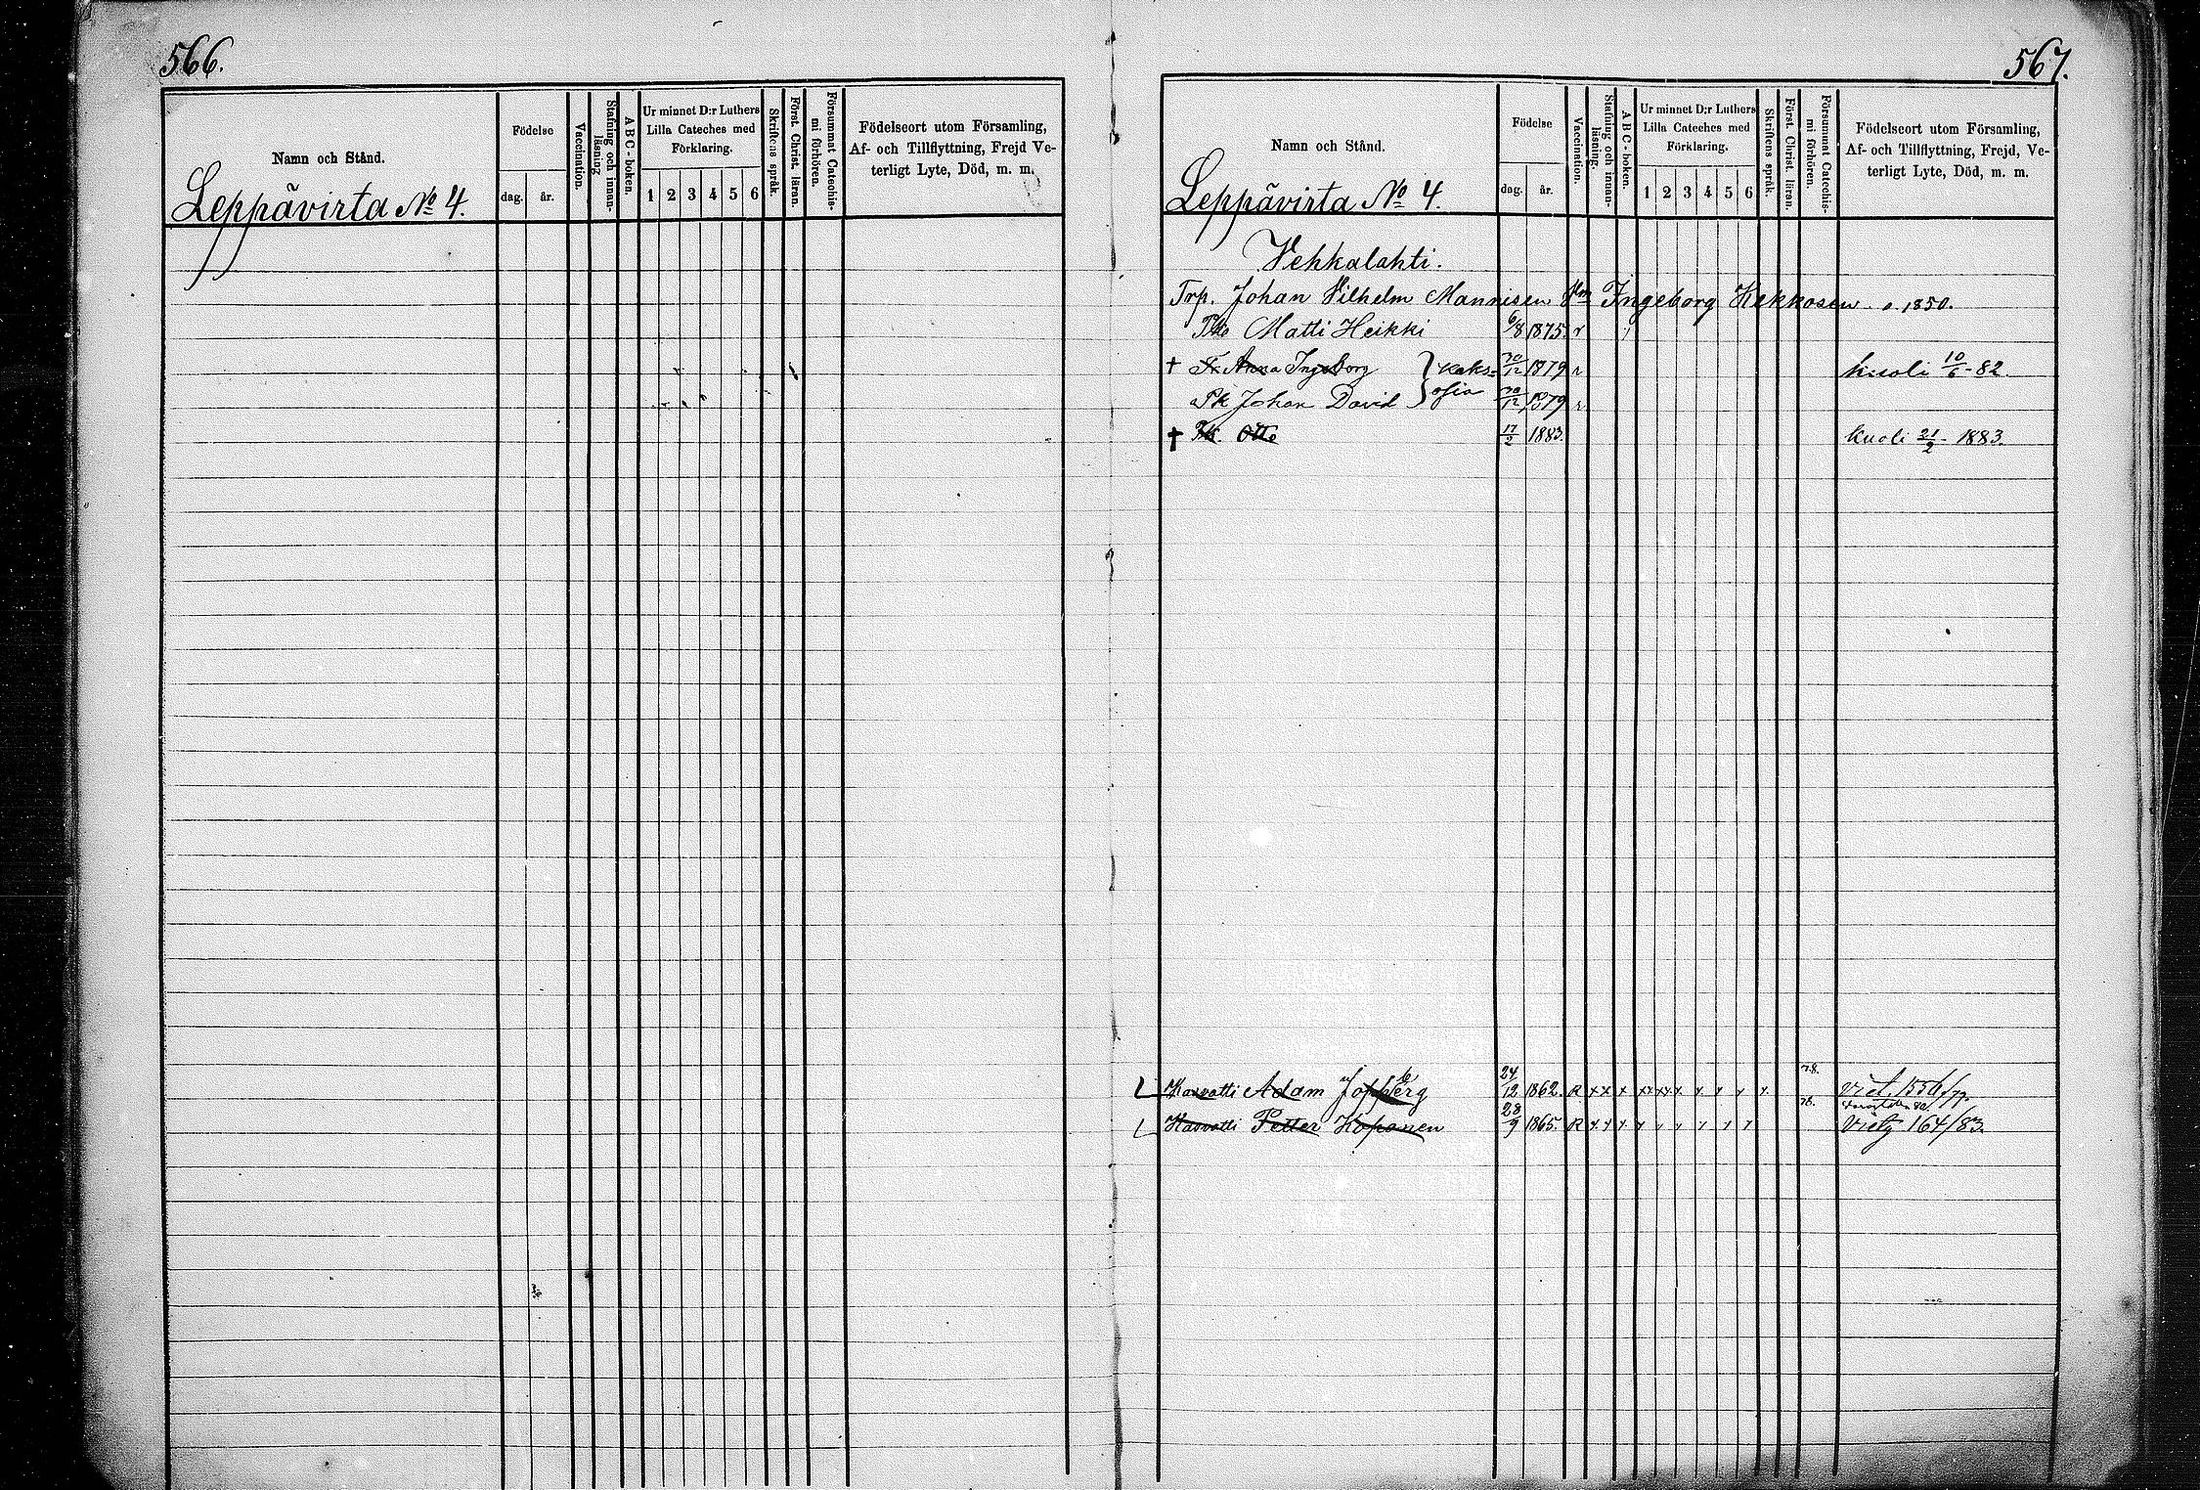 566.
Namn och Stånd.
Födelse
dag. år.
Vaccination.
Stafning och innan-
läsning
A B C - boken.
Ur minnet D:r Luthers
Lilla Cateches med
Förklaring.
1 2 3 4 5 6
Skriftens språk.
Först. Christ. läran.
Försummat Catechis-
mi förhören.
Födelseort utom Församling,
Af- och Tillflyttning, Frejd Ve-
terligt Lyte, Död, m. m.
Leppävirta No 4.
567.
Namn och Stånd.
Födelse
dag. år.
Vaccination.
Stafning och innan-
läsning.
A B C - boken.
Ur minnet D:r Luthers
Lilla Cateches med
Förklaring.
1 2 3 4 5 6
Skriftens språk.
Först. Christ. läran.
Försummat Catechis-
mi förhören.
Födelseort utom Församling,
Af- och Tillflyttning, Frejd, Ve-
terligt Lyte, Död, m. m.
Leppävirta No 4.
Vehkalahti.
Trp. Johan Vilhelm Manninen Ingeborg Kekkosen 1850.
Matti Heikki 6/8 1875.
† Anna Ingeborg } kaks= 30/12 1879 kuoli 10/6 - 82.
Pk Johan David } osia 30/12 1879
† Pk. Otto 17/2 1883. Kuoli 21/2 - 1883.
Kasvatti Adam Joppberg 24/12 1862. R 78.
Kasvatti Petter Koponen 28/9 1865. R 78. Viety 164/83.